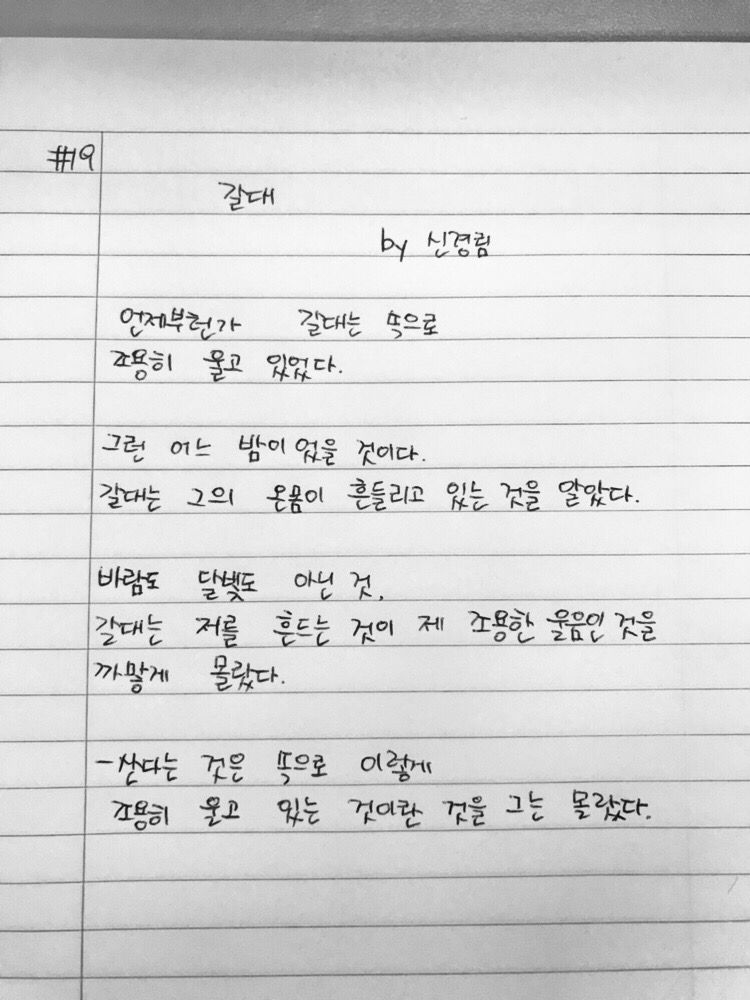 #19
갈대
by 신경림
언제부턴가 갈대는 속으로
조용히 울고 있었다.
그런 어느 밤이 었을 것이다.
갈대는 그의 온몸이 흔들리고 있는 것을 알았다.
바람도 달빛도 아닌 것,
갈대는 저를 흔드는 것이 제 조용한 울음인 것을
까맣게 몰랐다.
-산다는 것은 속으로 이렇게
조용히 울고 있는 것이란 것을 그는 몰랐다.